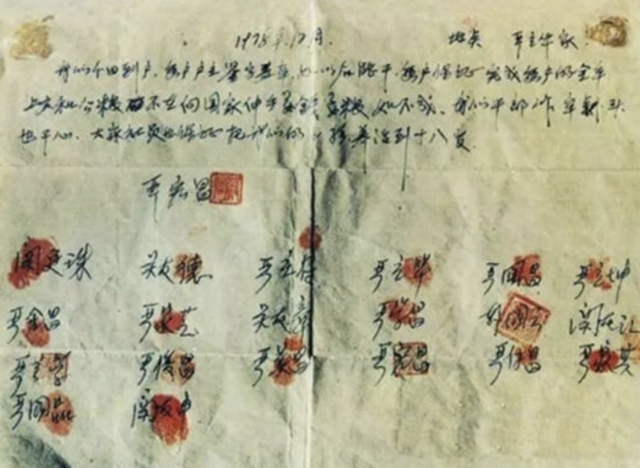 1978年12月. 地点 严立华家
我们分田到户. 每户户主签字盖章. 如以后能干. 每户保证完成每户的全年
上交和公粮 不在向国家伸手要钱要粮. 如不成. 我们干部作牢杀头
也干心. 大家社员也保证把我们的小孩养活到十八岁.
严宏昌
关友德 严立符 严立华 严国昌 严立坤
严金昌 关友章 严学昌 韩国云 关友江
严立学 严俊昌 严美昌 严宏昌 严付昌 严家其
严国品 关友申